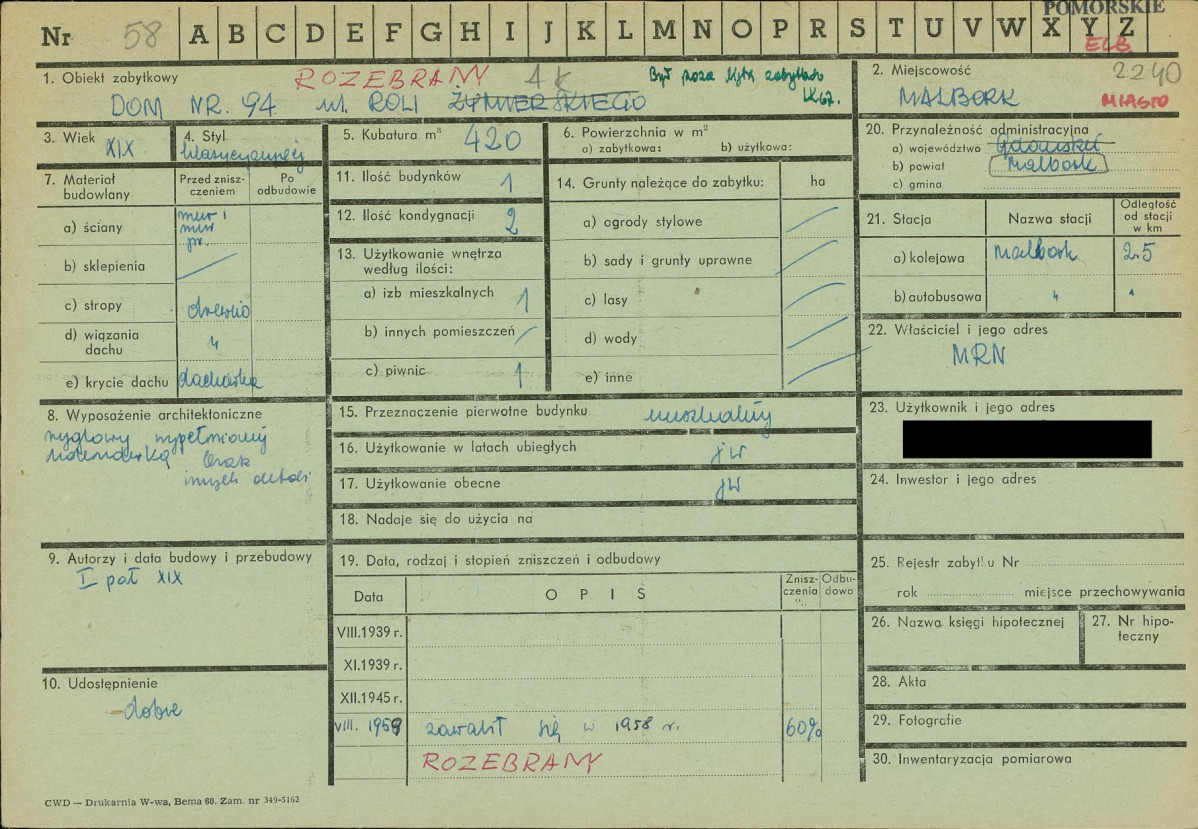 POMORSKIE
Nr 58 A B C D E F G H I J K L M N O P R S T U V W X Y Z
ELB
1. Obiekt zabytkowy ROZEBRANY
Był poza
zabytków
DOM NR. 94. ul. ROLI ŻYMIERSKIEGO
2. Miejscowość 2240
MALBORK MIASTO
3. Wiek XIX
4. Styl
5. Kubatura m³ 420
6. Powierzchnia w m²
a) zabytkowa: b) użytkowa:
20. Przynależność administracyjna
a) województwo Gdańskie
b) powiat Malbork
c) gmina
7. Materiał budowlany
Przed znisz-
czeniem
Po
odbudowie
a) ściany mur i
mur
pr.
b) sklepienia
c) stropy drewno
d) wiązania dachu "
e) krycie dachu dachówka
11. Ilość budynków 1
12. Ilość kondygnacji 2
13. Użytkowanie wnętrza
według ilości:
a) izb mieszkalnych 1
b) innych pomieszczeń
c) piwnic 1
14. Grunty należące do zabytku: ha
a) ogrody stylowe
b) sady i grunty uprawne
c) lasy
d) wody
e) inne
21. Stacja Nazwa stacji
Odległość
od stacji
w km
a) kolejowa Malbork 2.5
b) autobusowa " "
22. Właściciel i jego adres
MRN
8. Wyposażenie architektoniczne
ryglowy wypełniony
brak
innych
15. Przeznaczenie pierwotne budynku mieszkalny
16. Użytkowanie w latach ubiegłych jw
17. Użytkowanie obecne jw
18. Nadaje się do użycia na
23. Użytkownik i jego adres
24. Inwestor i jego adres
9. Autorzy i data budowy i przebudowy
I poł XIX
19. Data, rodzaj i stopień zniszczeń i odbudowy
Data OPIS
Znisz-
czenia
%
Odbu-
dowo
VIII.1939 r.
XI.1939 r.
XII.1945 r.
VIII. 1959 zawalił się w 1958 r. 60%
ROZEBRANY
10. Udostępnienie
dobre
25. Rejestr zabyt u Nr
rok miejsce przechowywania
26. Nazwa księgi hipotecznej
27. Nr hipo-
teczny
28. Akta
29. Fotografie
30. Inwentaryzacja pomiarowa
CWD — Drukarnia W-wa, Bema 60. Zam. nr 349-5162